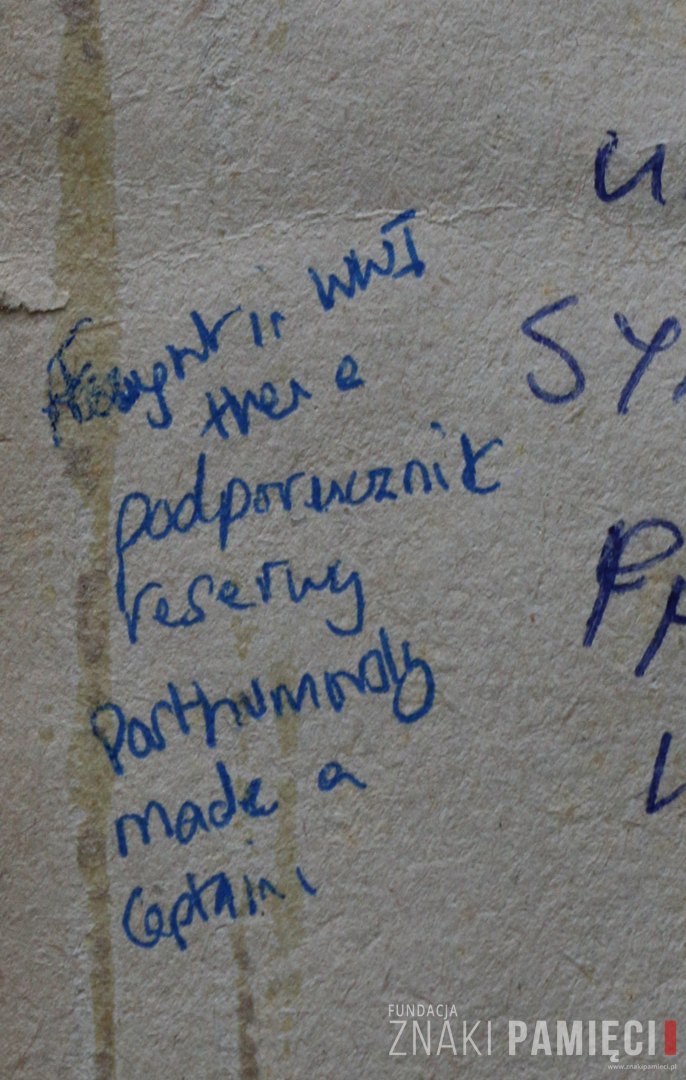 Fought in WWI
then a
podporucznik
reserwy
Posthumously
made a
Captain
SY
FUNDACJA
ZNAKI PAMIĘCI
www.znakipamieci.pl